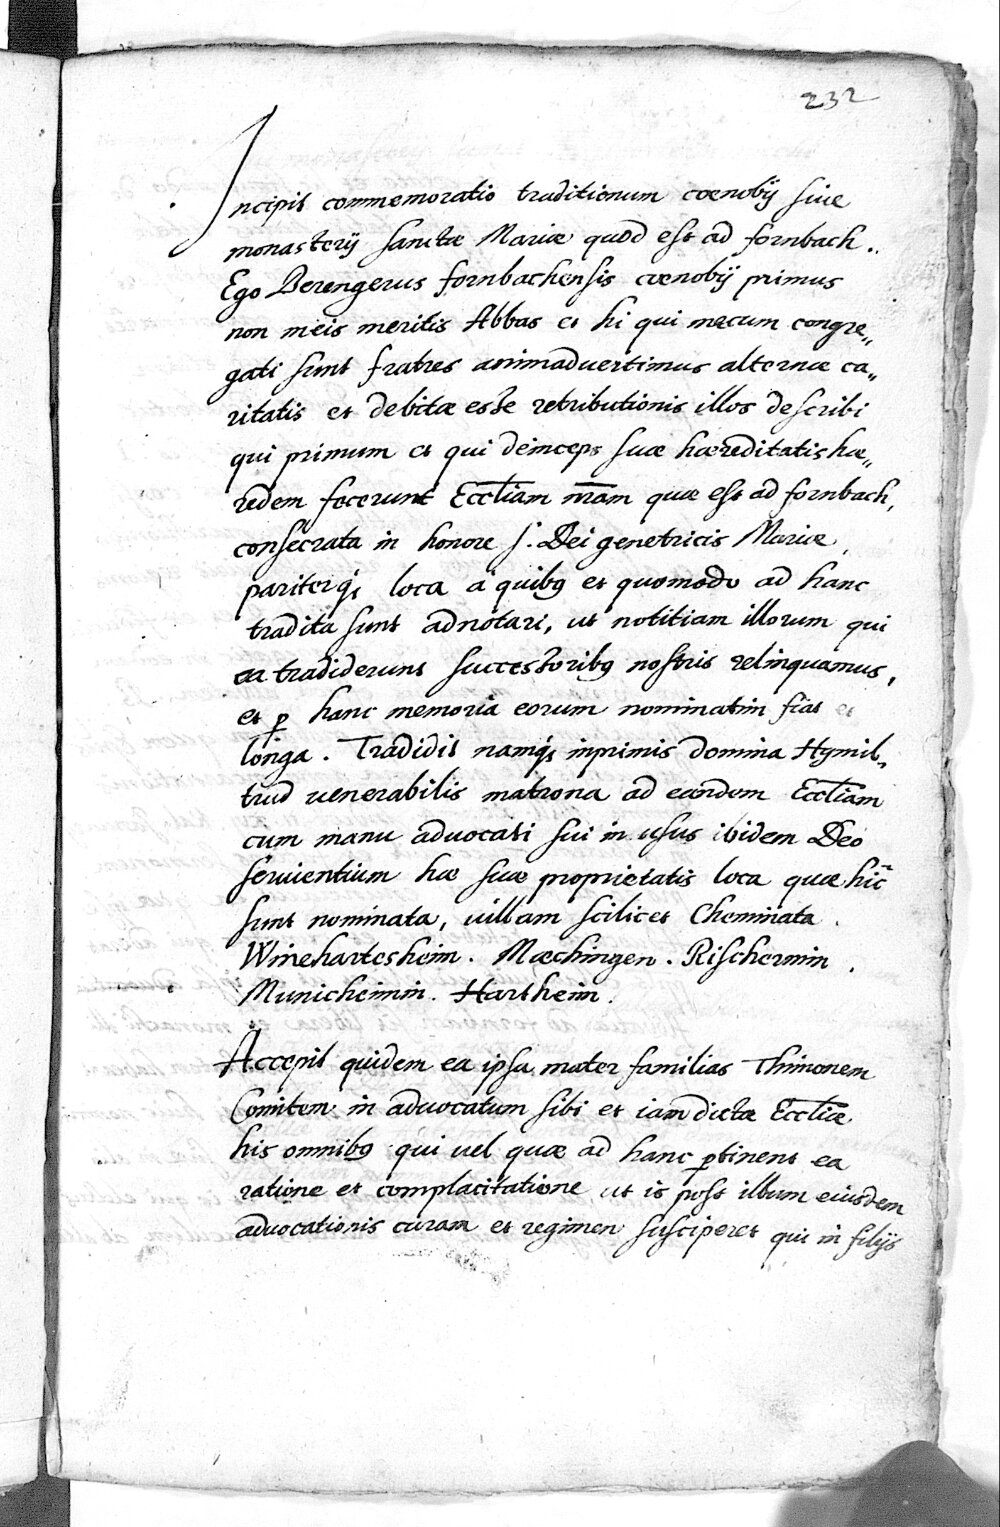 232
Incipit commemoratio traditionum coenobij siue
monasterij sanctæ Mariæ quod est ad fornbach.
Ego Berengerus fornbachensis cœnobij primus
non meis meritis Abbas et hi qui mecum congre„
gati sunt fratres animaduertimus alternæ ca„
ritatis et debitæ esse retributionis illos describi
qui primum et qui deinceps suæ hæreditatis hæ„
redem fecerunt Eccl̄iam nr̄am quæ est ad fornbach,
consecrata in honore S. Dei genetricis Mariæ,
pariterq; loca a quibꝰ et quomodo ad hanc
tradita sunt adnotari, ut notitiam illorum qui
ea tradiderunt successoribꝰ nostris relinquamus,
et ꝑ hanc memoria eorum nominatim fiat et
longa. Tradidit namq; inprimis domina Hymil„
trud uenerabilis matrona ad eandem Eccl̄iam
cum manu aduocati sui in usus ibidem Deo
seruientium hæ suæ proprietatis loca quæ hic̄
sunt nominata, uillam scilicet Cheminata.
Winehartesheim. Mæchingen. Rischermin.
Municheimin. Hartheim.
Accepit quidem ea ipsa mater familias Thimonem
Comitem in aduocatum sibi et iam dictæ Eccl̄iæ
his omnibꝰ qui uel quæ ad hanc ꝑtinent ea
ratione et complacitatione ut is post illum eiusdem
aduocationis curam et regimen susciperet qui in filijs